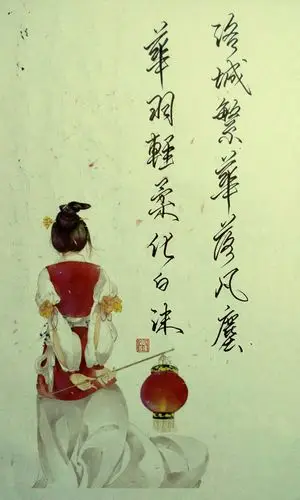 洛城繁華落凡塵
華羽輕柔化白沫